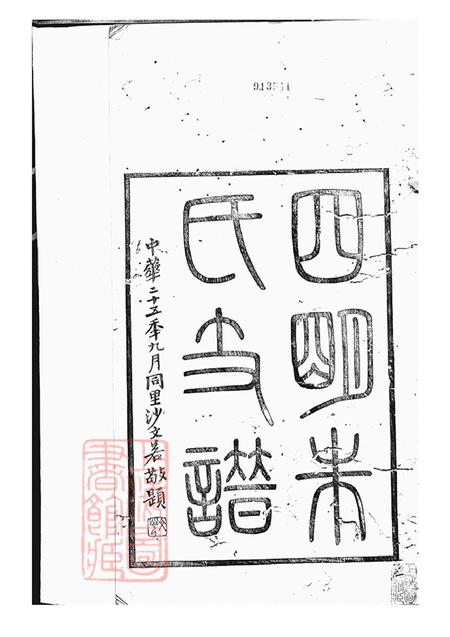 913341
四明朱
氏支譜
中華二十五年九月同里沙文若敬題